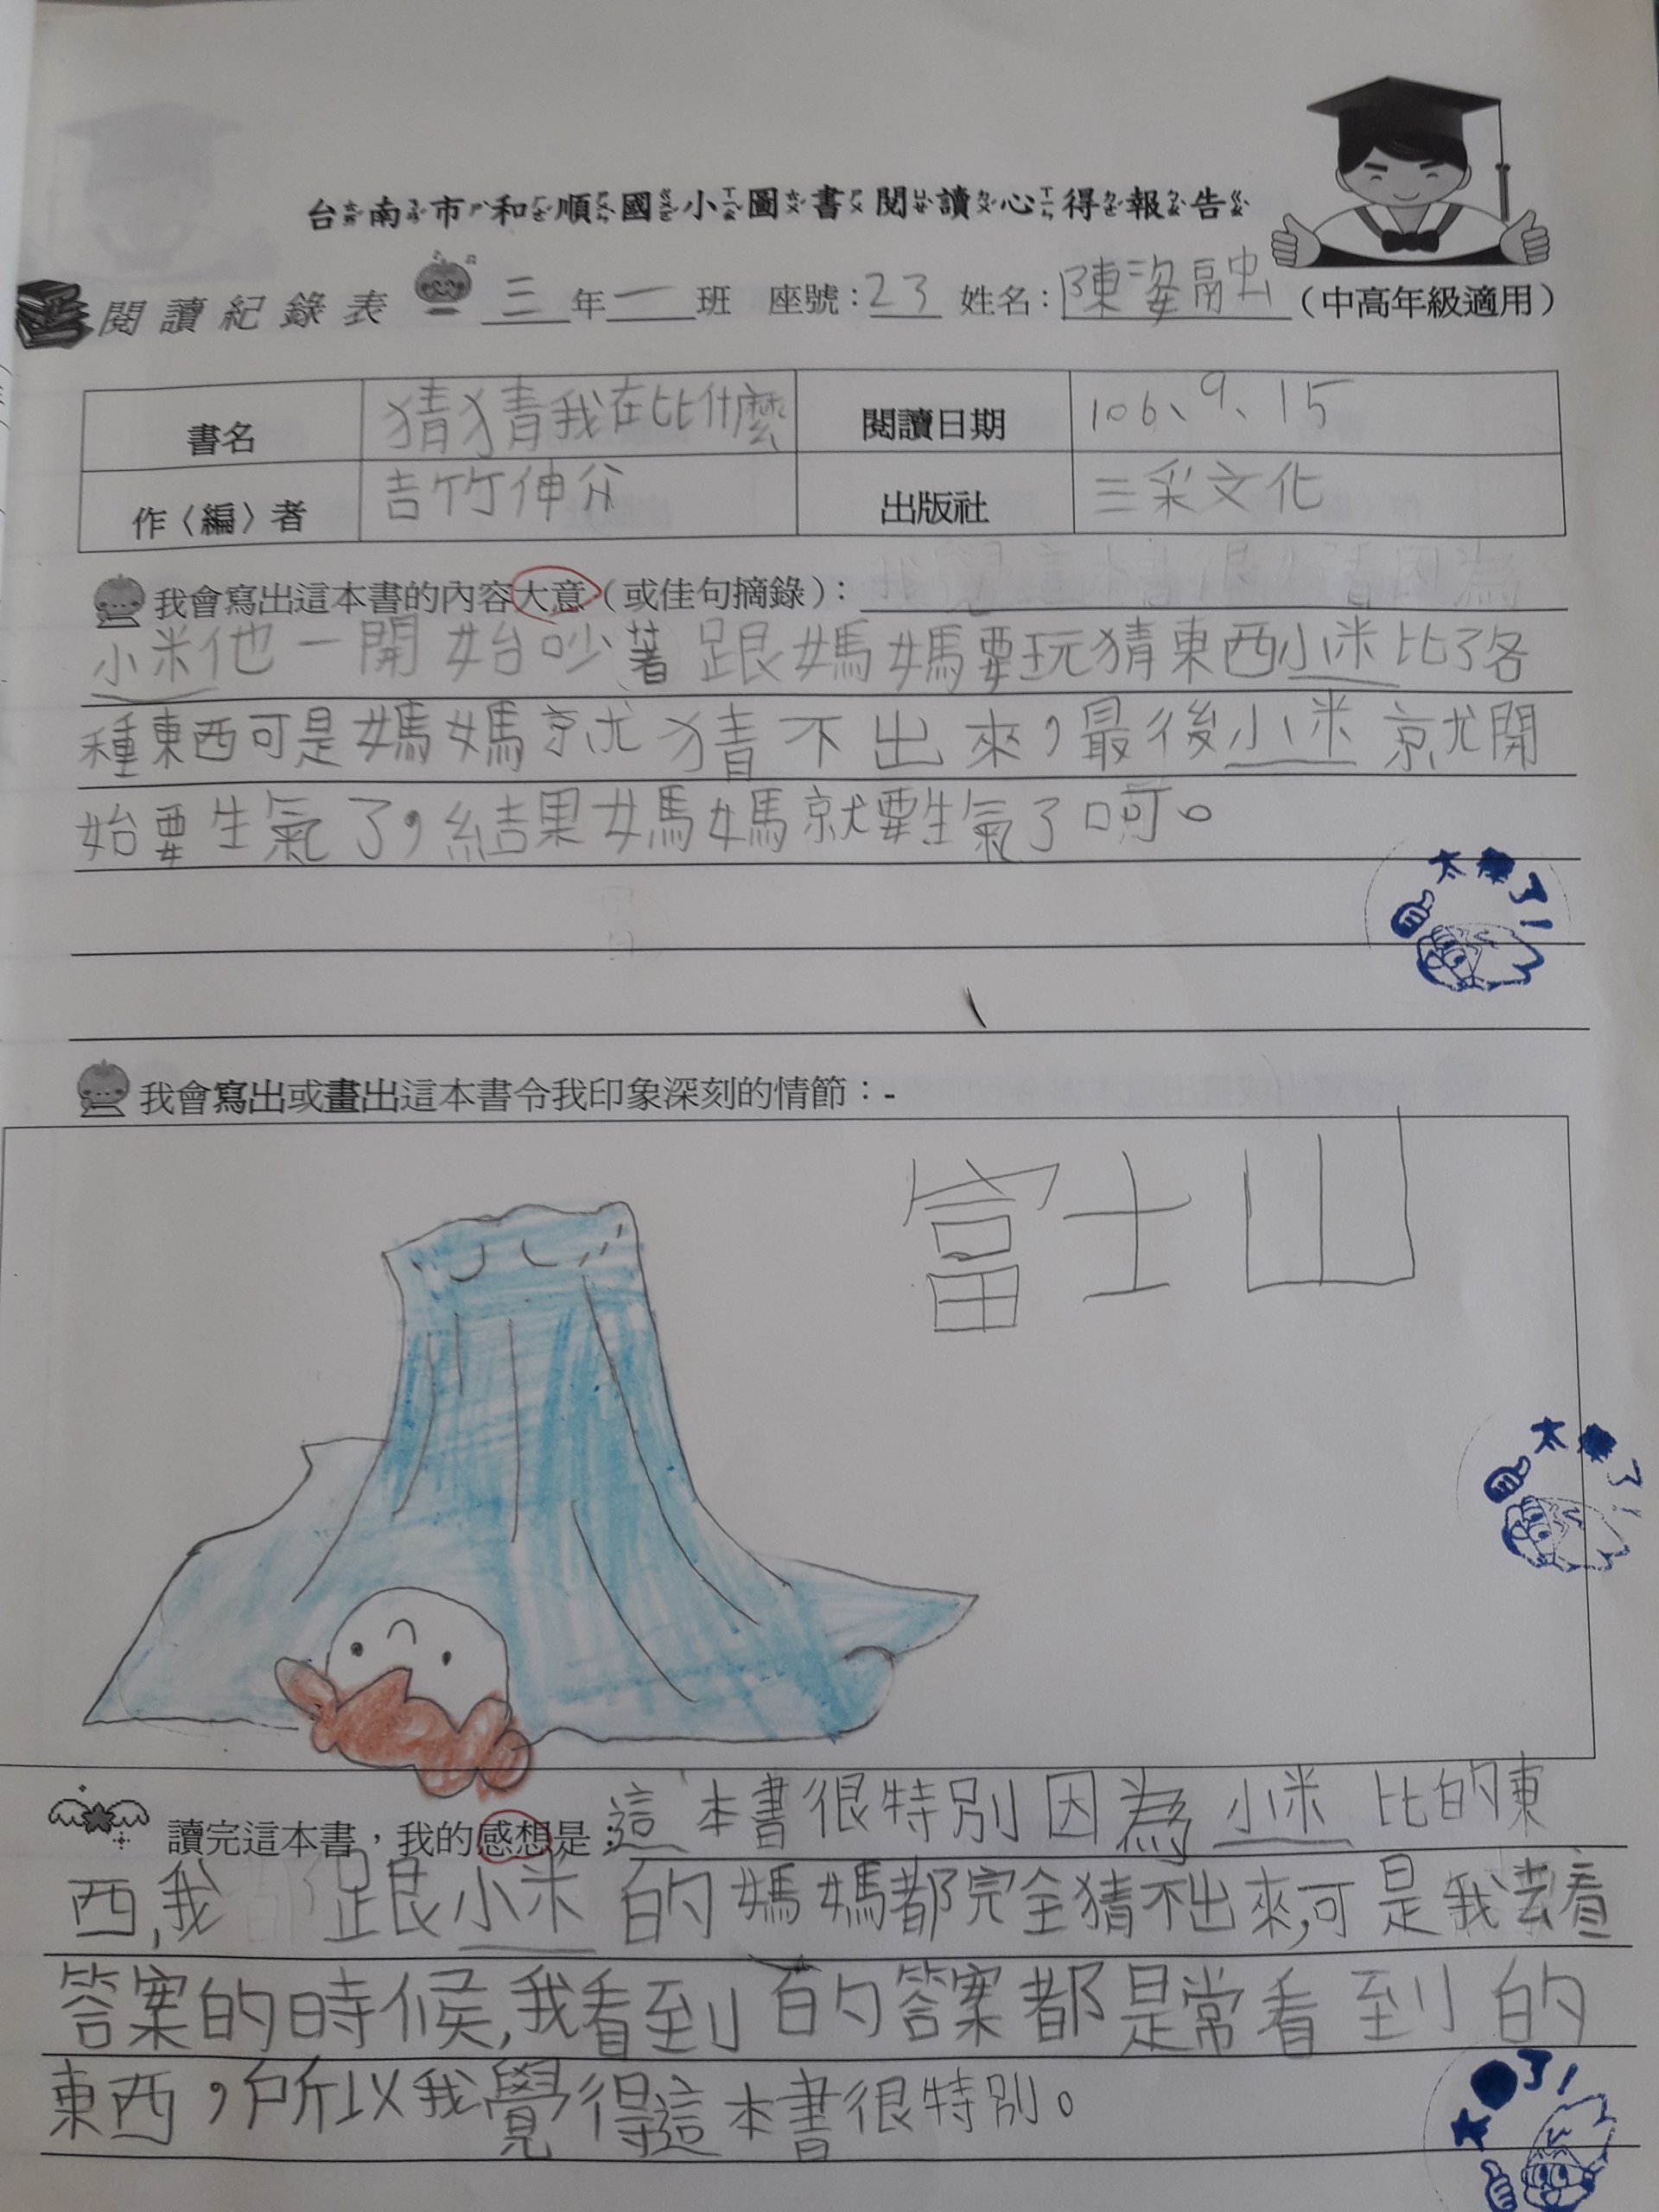 台南市和順國小圖書閱讀心得報告
閱讀紀錄表 三年一班 座號：23 姓名：陳姿融（中高年級適用）
書名 猜猜我在比什麼 閱讀日期 106、9、15
作〈編〉者 吉竹伸介 出版社 三采文化
我會寫出這本書的內容大意（或佳句摘錄）：
小米他一開始吵著跟媽媽要玩猜東西小米比了各
種東西可是媽媽就猜不出來，最後小米就開
始要生氣了，結果媽媽就要生氣了呵。
太棒了！
我會寫出或畫出這本書令我印象深刻的情節：-
富士山
太棒了！
讀完這本書，我的感想是：這本書很特別因為小米比的東
西,我跟小米的媽媽都完全猜不出來,可是我去看
答案的時候,我看到的答案都是常看到的
東西，所以我覺得這本書很特別。
了！